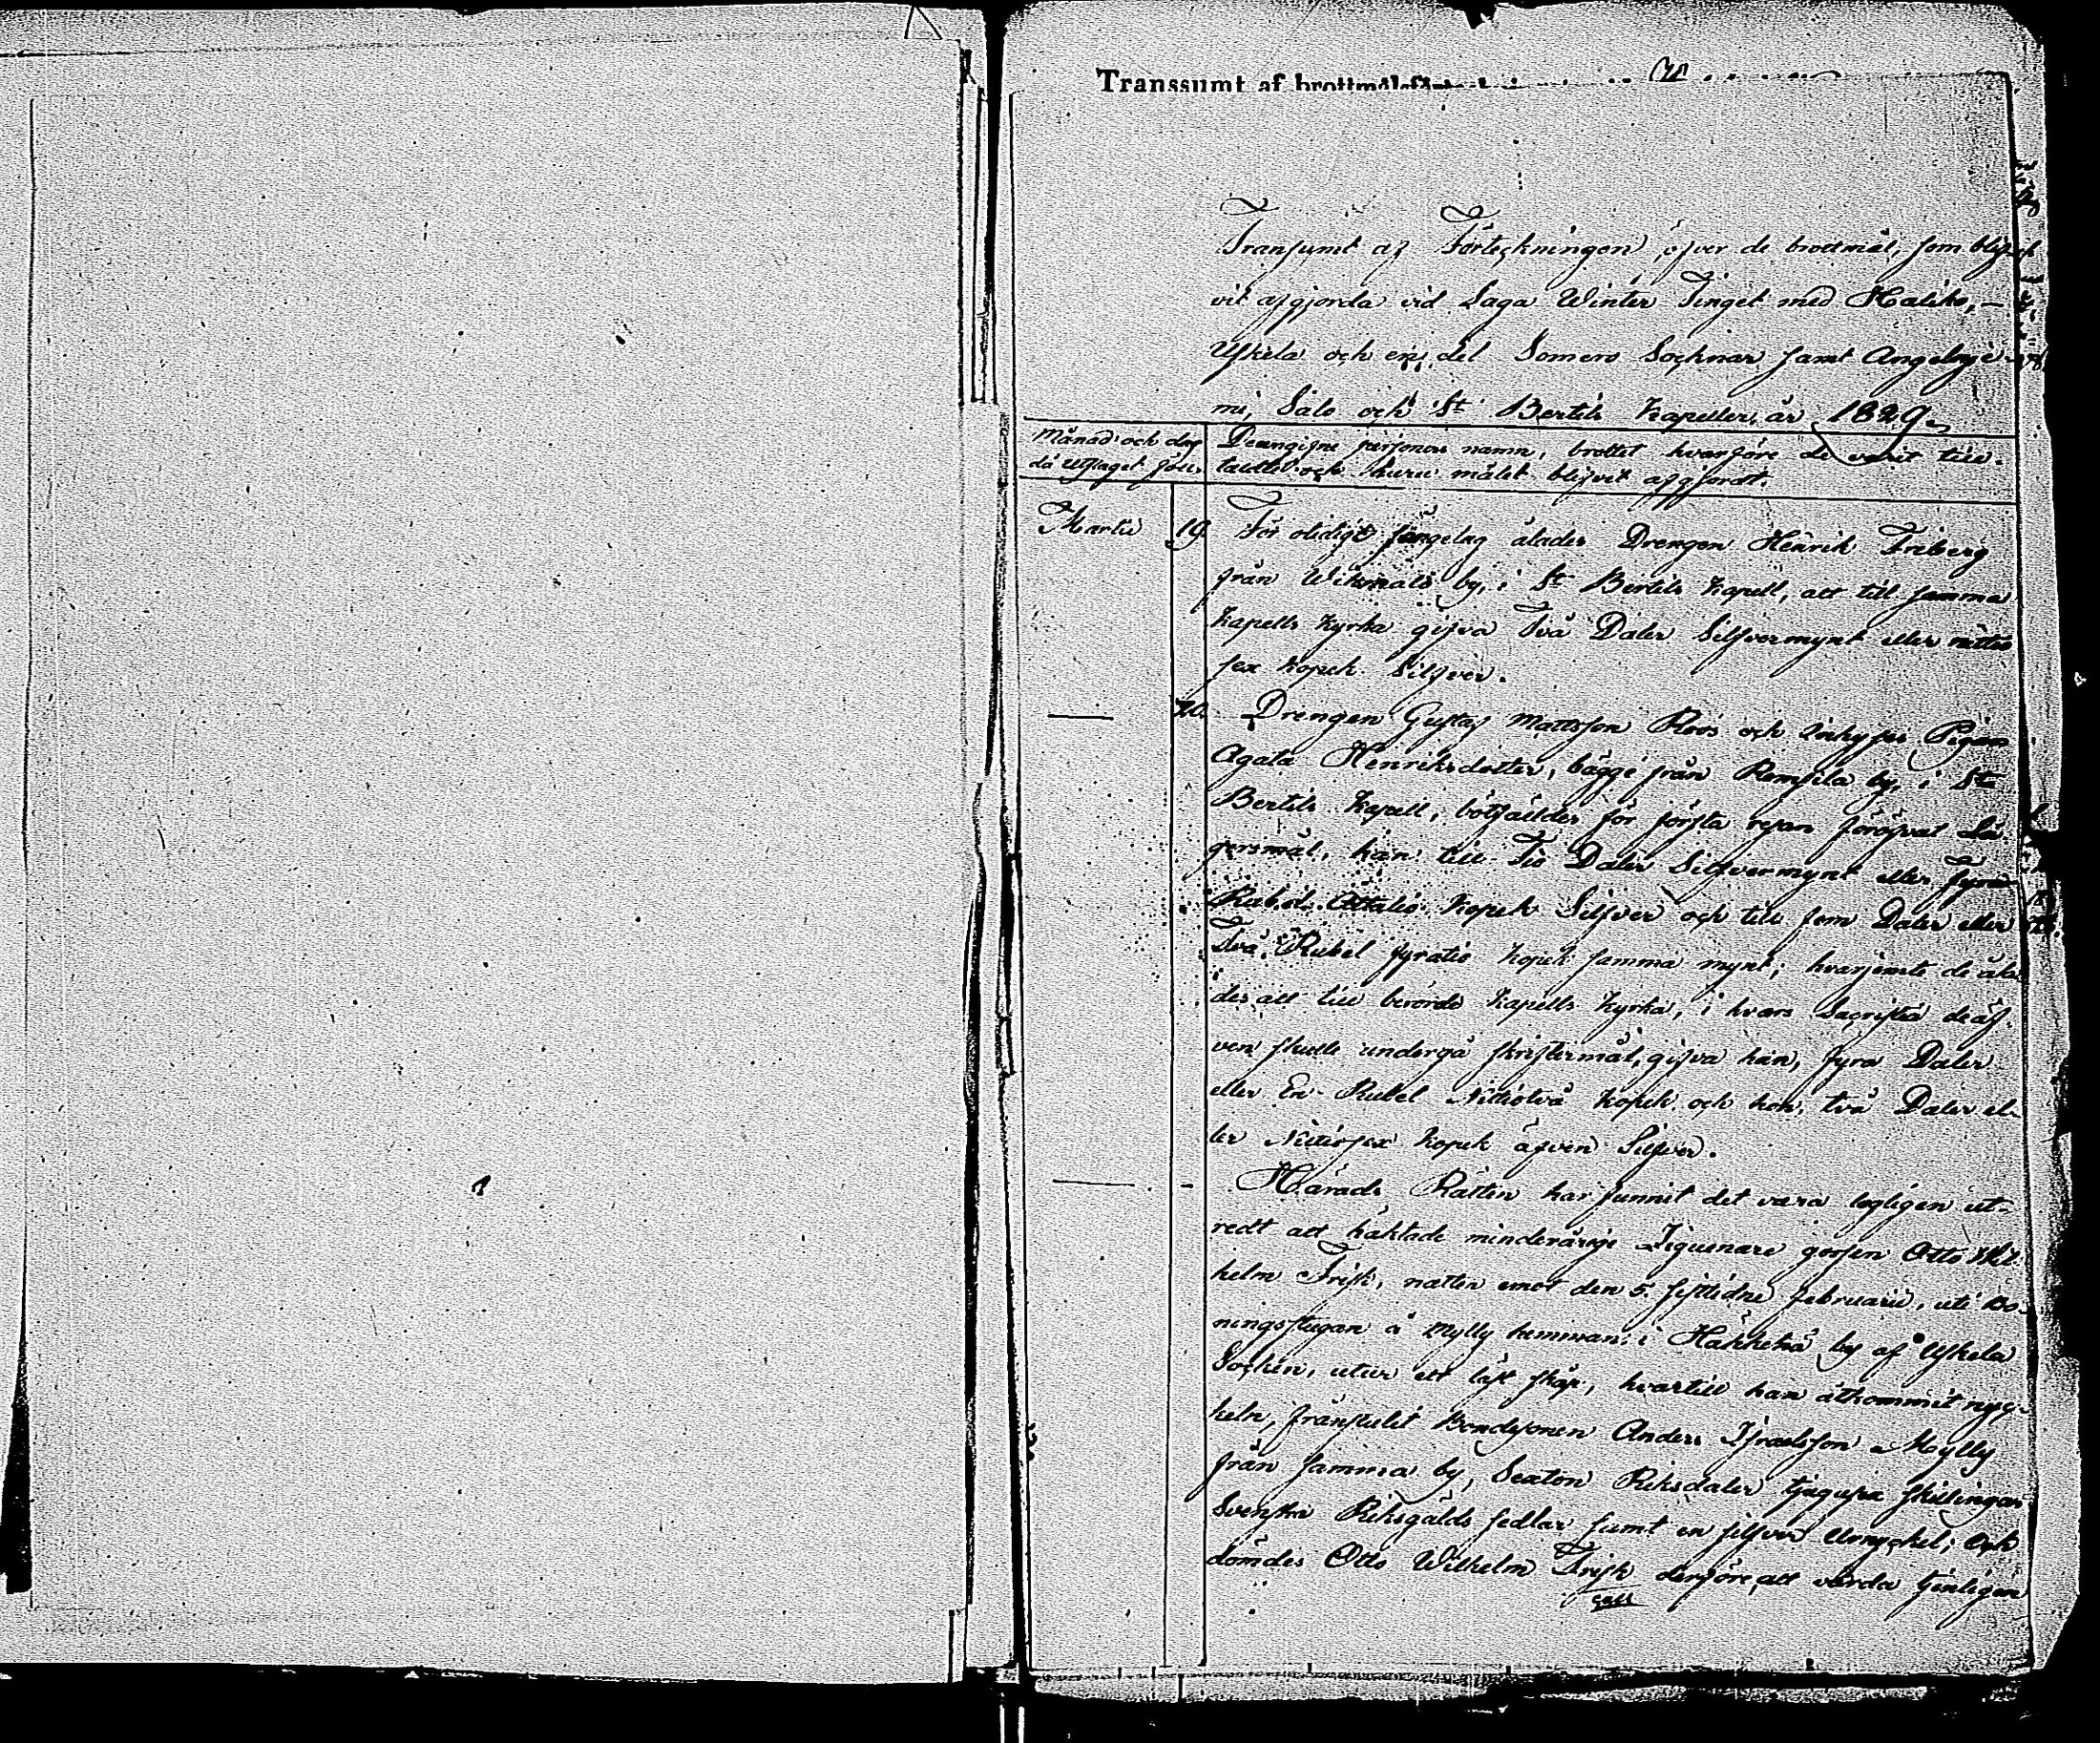 Transsumt af
Transumt af Förteckningen öfver de brottmål, som blif-
vit afgjorda vid Laga Winter Tinget med Haliko, –
Uskela och en del Somero Socknar samt Angelnie-
mi, Salo och St Bertils Kapeller, år 1829.
Månad och dag
då utslaget föll.
personers namn, brottet hvarföre de varit till-
taldte och huru målet blifvit afgjordt.
Martii 19. För otidigt sängelag ålades Drengen Henrik Friberg
från by, i St Bertils Kapell, att till samma
Kapells Kyrka gifva Två Daler Silfvermynt eller nittio
sex Kopek Silfver.
— 20. Drengen Gustaf Mattsson Roos och Inhyses Pigan
Agata Henriksdotter, bägge från Romsila by, i St
Bertils Kapell, bötfäldes för första resan föröfvat Lä-
gersmål, han till Tio Daler Silfvermynt eller Fyra
Rubel Åttatio Kopek Silfver och till fem Daler eller
Två Rubel fyratio Kopek samma mynt; hvarjemte de åla-
des att till berörde Kapells Kyrka, i hvars Sacristia de äf-
ven skulle undergå skriftermål, gifva han, fyra Daler
eller En Rubel Nittiotvå Kopek och hon, två Daler el-
ler Nittiosex Kopek äfven Silfver.
— - Härads Rätten har funnit det vara lagligen ut-
redt att häktade minderårige Ziguenare gossen Otto Wil-
helm Frisk, natten emot den 5. sistlidne februarii, uti Bo-
ningsstugan å Mylly hemman i Hakkekä by af Uskela
Socken, utur ett låst skåp, hvartill han åtkommit nyc-
keln, frånstulit Bondesonen Anders Israelsson Mylly
från samma by, Sexton Riksdaler tjugusex skillingar
Svenska Riksgälds sedlar samt en silfver Urnyckel; Och
dömdes Otto Wilhelm Frisk derföre, att varda tjenligen